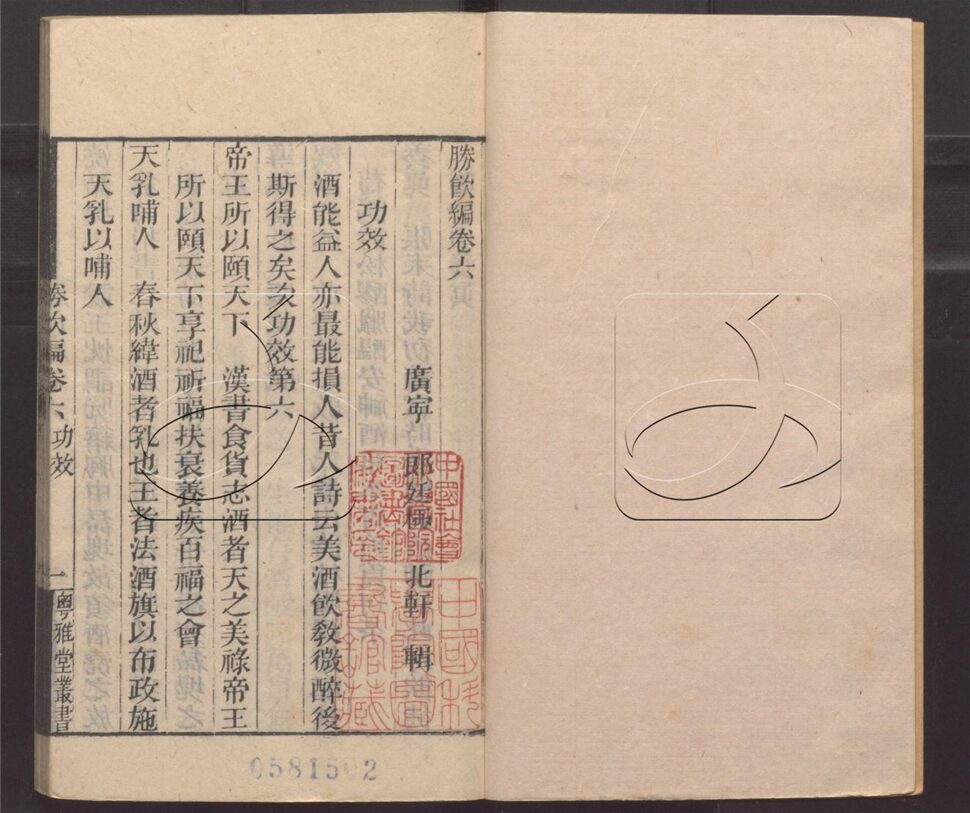 勝飲編卷六
廣寧 郎廷極 北軒 輯
功效
酒能益人亦最能損人昔人詩云美酒飲敎微醉後
斯得之矣次功效第六
帝王所以頤天下 漢書食貨志酒者天之美祿帝王
所以頤天下享祀祈福扶衰養疾百福之會
天乳哺人 春秋緯酒者乳也王者法酒旗以布政施
天乳以哺人
勝飲編卷六 功效
一
粤雅堂叢書
中國社會
中國科
0581502